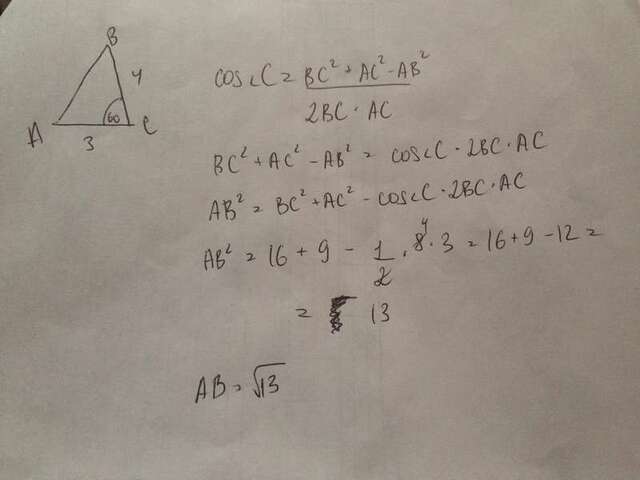 A
B
C
3
4
60
cos∠C = BC² + AC² - AB²
2BC · AC
BC² + AC² - AB² = cos∠C · 2BC · AC
AB² = BC² + AC² - cos∠C · 2BC · AC
AB² = 16 + 9 - 1/2 · 8⁴ · 3 = 16 + 9 - 12 =
= 13
AB = √13